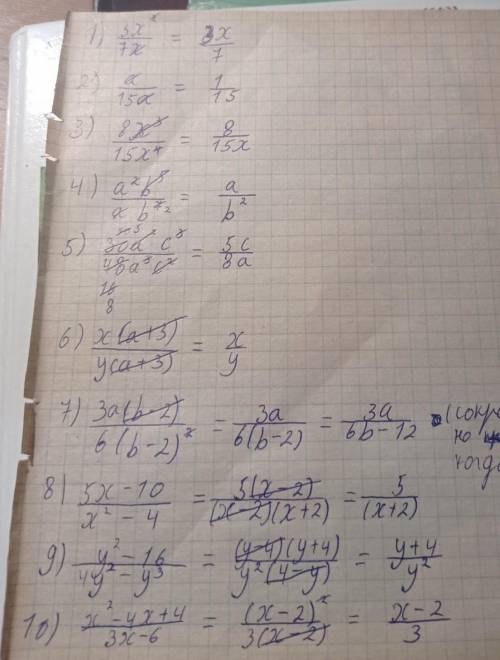 1) 3x²/7x = 3x/7
2) a/15a = 1/15
3) 8x³/15x⁴ = 8/15x
4) a²b⁵/ab⁷ = a/b²
5) 30a²c³/48a³c² = 5c/8a
6) x(a+3)/y(a+3) = x/y
7) 3a(b-2)/6(b-2)² = 3a/6(b-2) = 3a/6b-12
8) 5x-10/x²-4 = 5(x-2)/(x-2)(x+2) = 5/(x+2)
9) y²-16/4y²-y³ = (y-4)(y+4)/y²(4-y) = y+4/y²
10) x²-4x+4/3x-6 = (x-2)²/3(x-2) = x-2/3